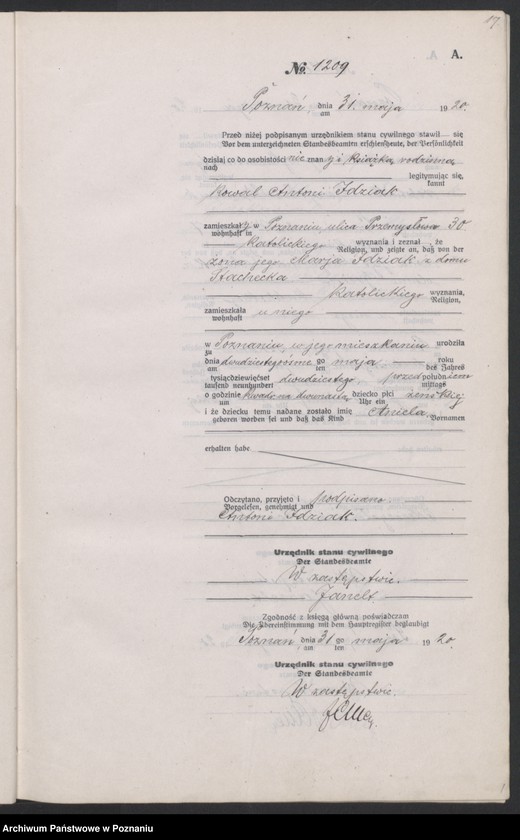 17.
A.
№ 1209
Poznań, dnia 31. maja 1920.
am
Przed niżej podpisanym urzędnikiem stanu cywilnego stawił się
Vor dem unterzeichneten Standesbeamten erschien heute, der Persönlichkeit
dzisiaj co do osobistości nie znany i książką rodzinną
nach
legitymując się,
kannt
kowal Antoni Idziak
zamieszkały w Poznaniu, ulica Przemysłowa 30.
wohnhaft in
katolickiego wyznania i zeznał że
Religion, und zeigte an, daß von der
żona jego Marja Idziak z domu
Stachecka
katolickiego wyznania,
Religion,
zamieszkała u niego
wohnhaft
w Poznaniu, w jego mieszkaniu urodziła
zu
dnia dwudziestego ósme go maja roku
am ten des Jahres
tysiącdziewięćset dwudziestego, przed południem
tausend neunhundert mittags
o godzinie kwadr na dwunastą dziecko płci żeńskiej
um Uhr ein
i że dziecku temu nadane zostało imię Aniela.
geboren worden sei und daß das Kind Vornamen
erhalten habe
Odczytano, przyjęto i podpisano
Vorgelesen, genehmigt und
Antoni Idziak.
Urzędnik stanu cywilnego
Der Standesbeamte
W zastępstwie.
Janelt.
Zgodność z księgą główną poświadczam
Die Übereinstimmung mit dem Hauptregister beglaubigt
Poznań, dnia 31 go maja 1920.
am ten
Urzędnik stanu cywilnego
Der Standesbeamte
W zastępstwie.
Archiwum Państwowe w Poznaniu